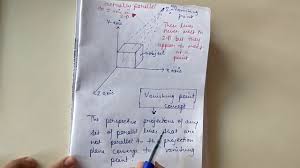 actually parallel
to z axis
Z-P
Vanishing
point
These lines
never meet to
Z-P but they
appear to meet
at a point
Y axis
X axis
Z axis
Vanishing point
concept
The perspective projections of any
set of parallel lines that are
not parallel to the projection
plane converge to a vanishing
point